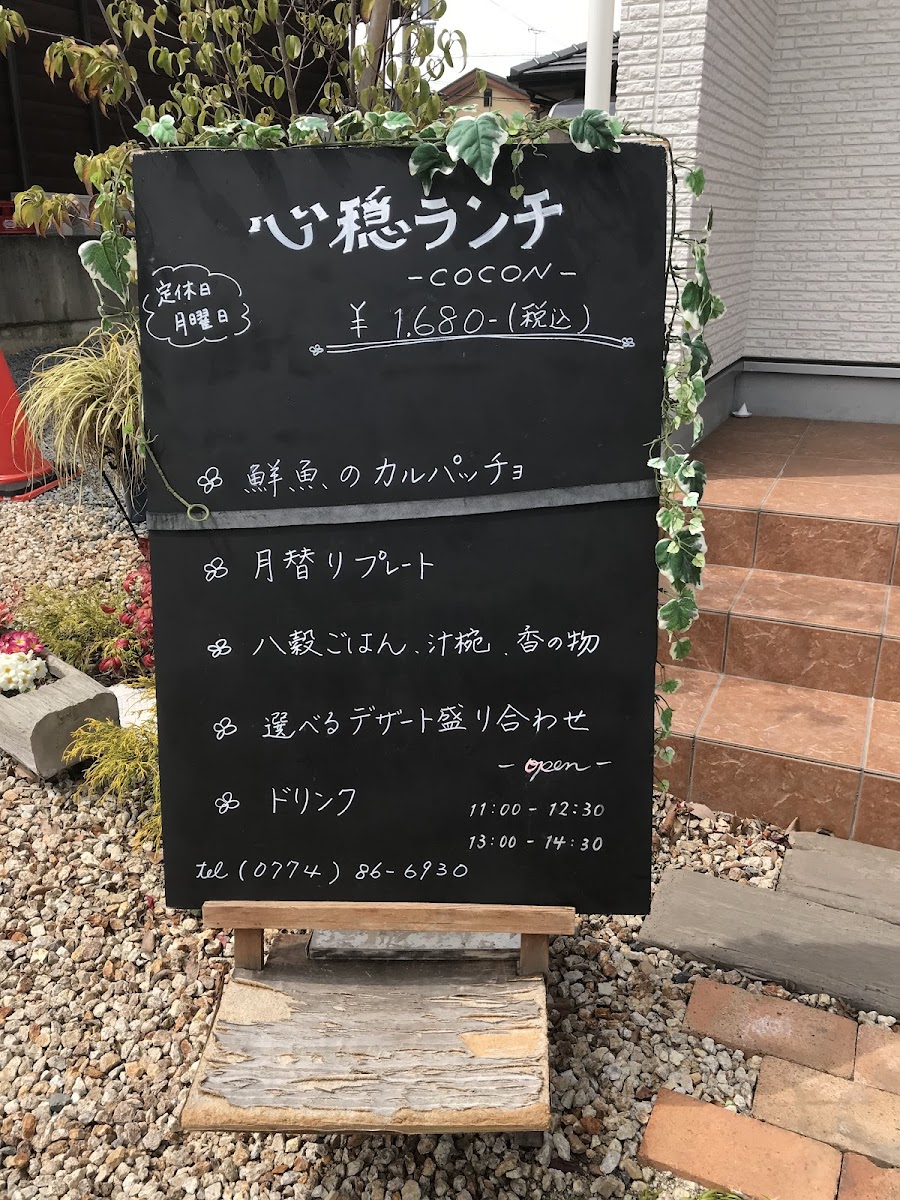 心穏ランチ
-COCON-
定休日
月曜日
¥ 1.680-(税込)
鮮魚のカルパッチョ
月替りプレート
八穀ごはん、汁椀、香の物
選べるデザート盛り合わせ
-open-
ドリンク
11:00-12:30
13:00-14:30
tel (0774) 86-6930